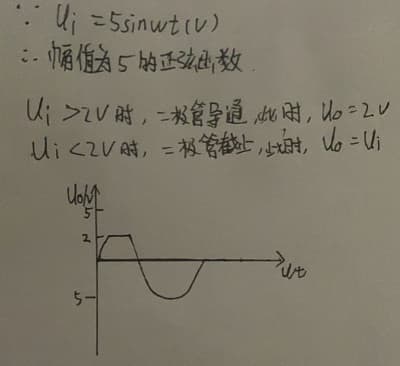 ∵ Ui = 5sinwt(V)
∴ 幅值为5的正弦函数.
Ui > 2V 时, 二极管导通, 此时, Uo = 2V
Ui < 2V 时, 二极管截止, 此时, Uo = Ui
Uo/V
5
2
5
wt